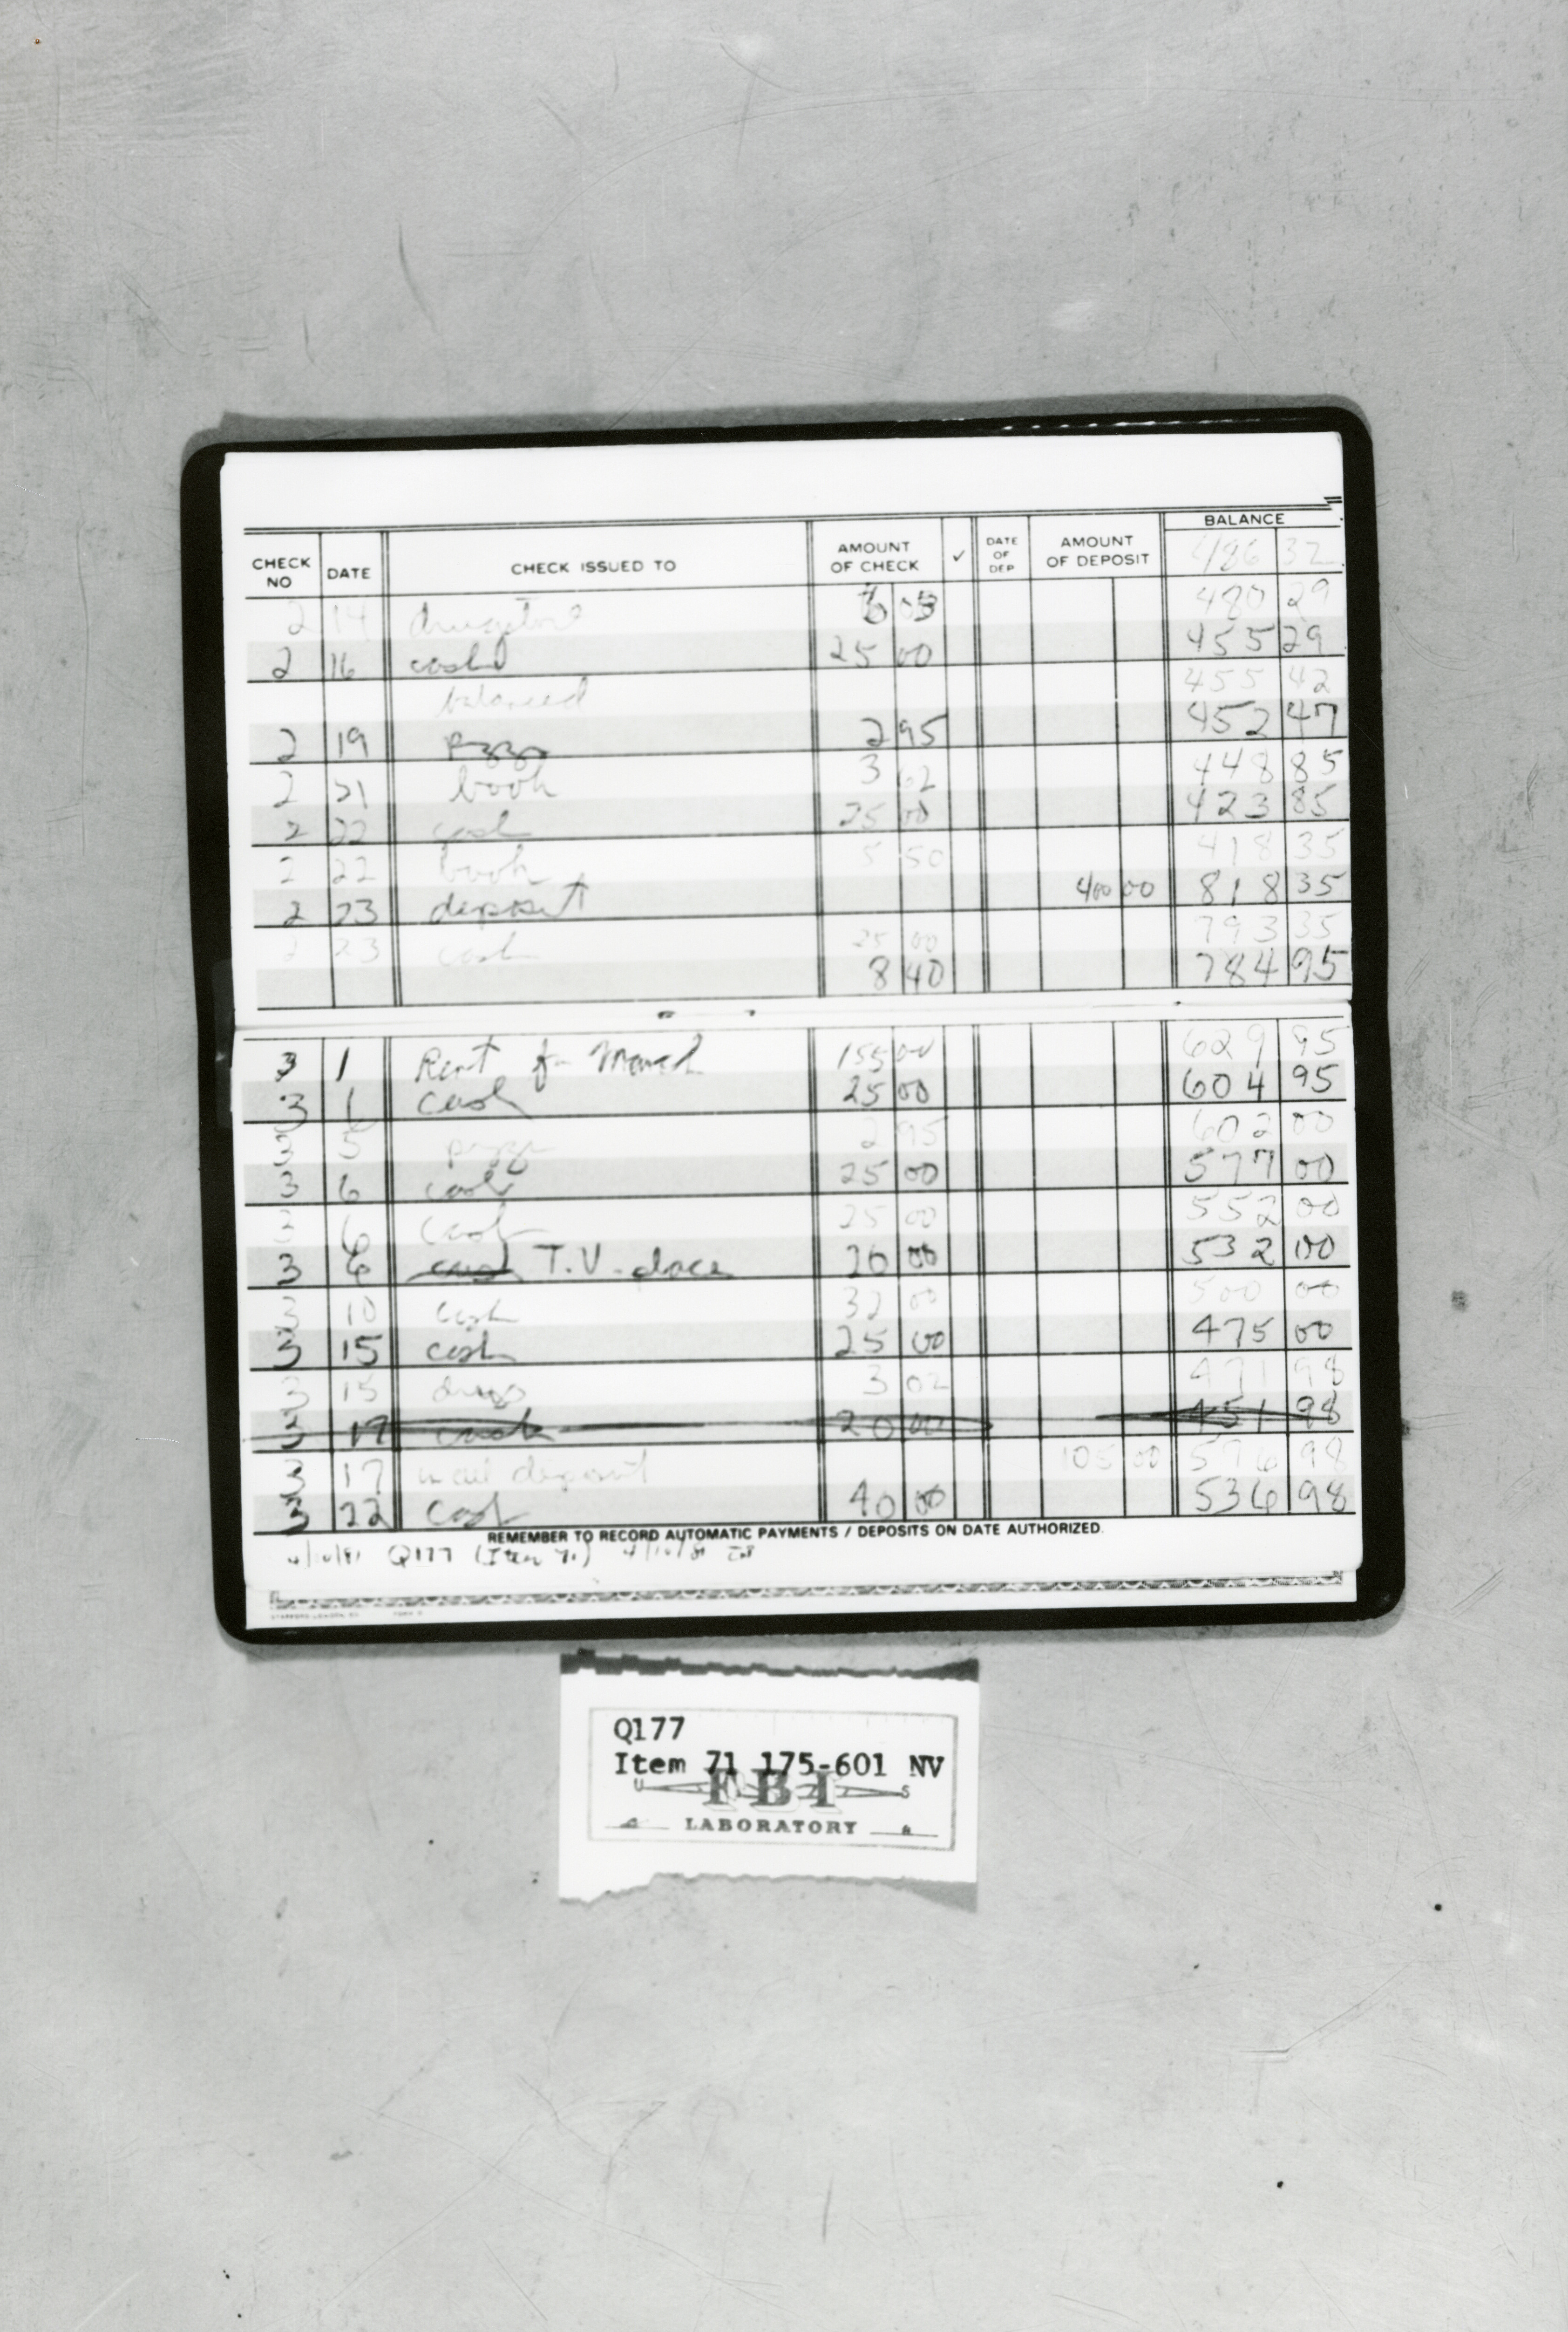 BALANCE
CHECK NO DATE CHECK ISSUED TO AMOUNT OF CHECK ✓ DATE OF DEP AMOUNT OF DEPOSIT 486 32
2 14 drugstore 6 03 480 29
2 16 cash 25 00 455 29
balanced 455 42
2 19 pizza 2 95 452 47
2 21 book 3 62 448 85
2 22 cash 25 00 423 85
2 22 book 5 50 418 35
2 23 deposit 400 00 818 35
2 23 cash 25 00 793 35
8 40 784 95
3 1 Rent for March 155 00 629 95
3 1 cash 25 00 604 95
3 5 pizza 2 95 602 00
3 6 cash 25 00 577 00
3 6 cash 25 00 552 00
3 6 cash T.V. place 20 00 532 00
3 10 cash 32 00 500 00
3 15 cash 25 00 475 00
3 15 drugs 3 02 471 98
3 17 cash 20 00 451 98
3 17 mail deposit 105 00 576 98
3 22 cash 40 00 536 98
REMEMBER TO RECORD AUTOMATIC PAYMENTS / DEPOSITS ON DATE AUTHORIZED.
4/10/81 Q177 (Item 71) 4/10/81
Q177
Item 71 175-601 NV
U S
FBI
LABORATORY